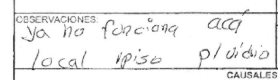 OBSERVACIONES:
ya no funciona acá
local 1piso p/vidrio
CAUSALES